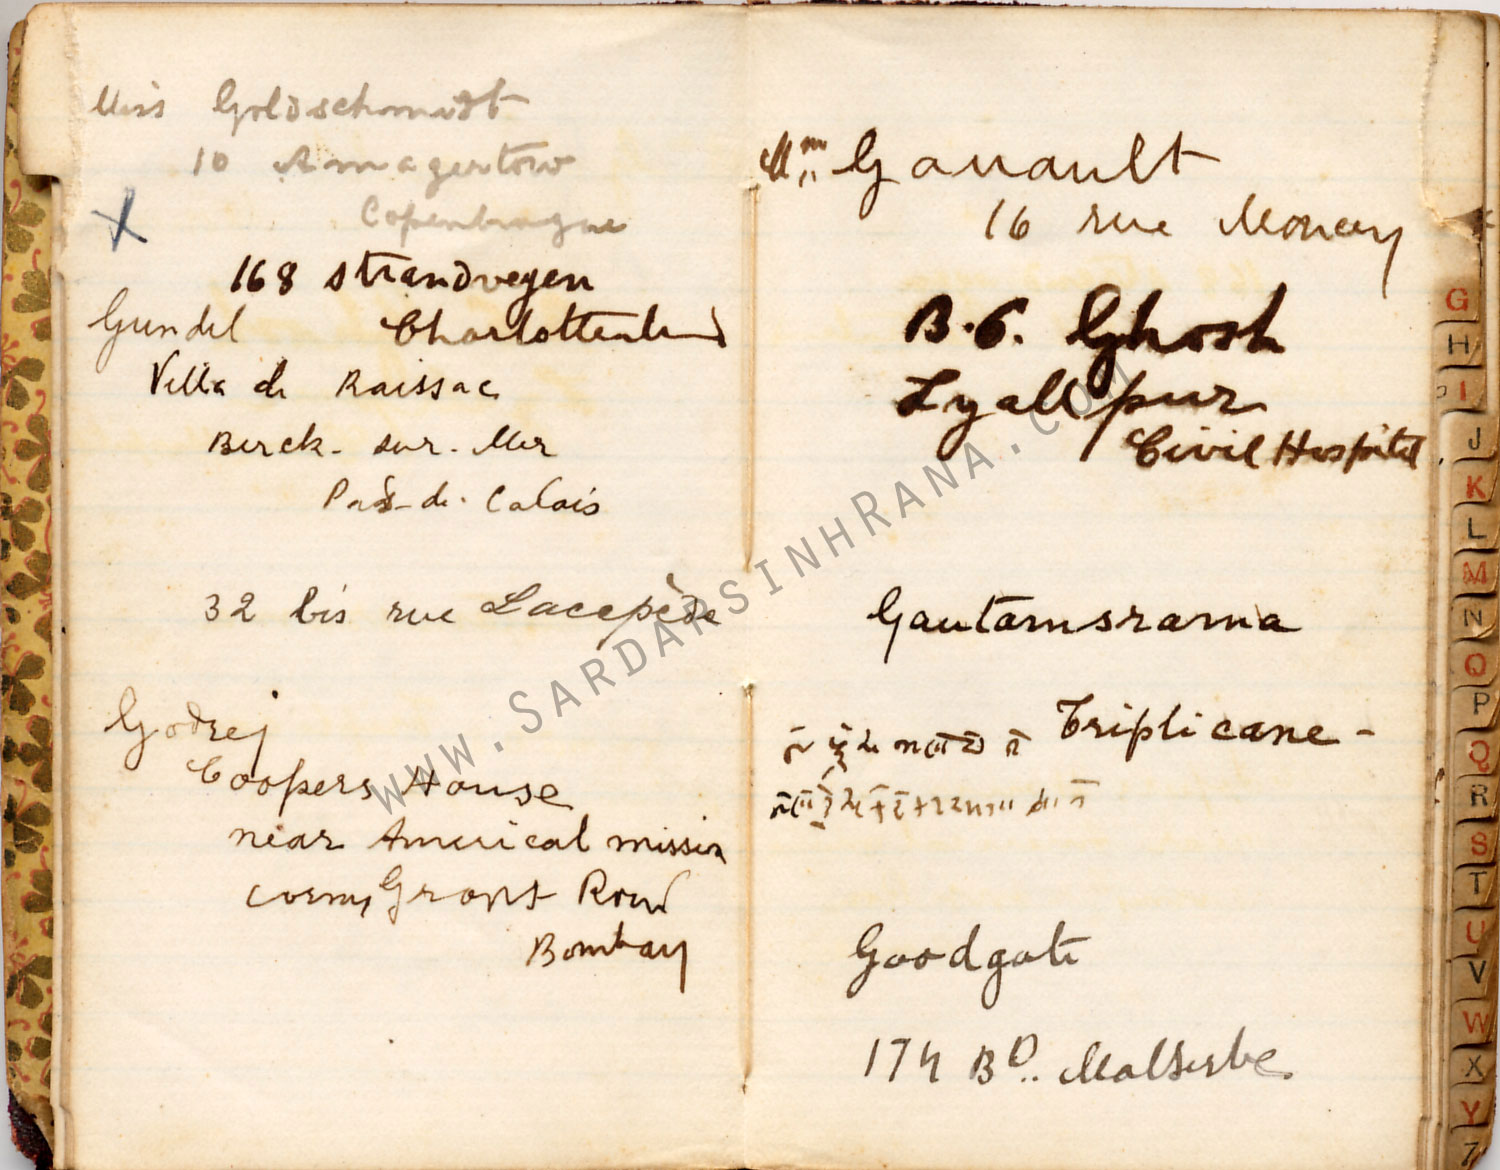 Miss Goldschmidt
10 Amagertorv
Copenhague
168 Strandvegen
Gundel Charlottenlund
Villa de Raissac
Berck-sur-Mer
Pas-de-Calais
32 bis rue Lacepède
Godrej
Coopers House
near Americal mission
Grant Road
Bombay
Mme
16 rue Moncey
B. G. Ghosh
Lyallpur
Civil Hospital
Gautamsrama
Triplicane -
Goodgate
174 BD. Malserbe
www.SardarsinhRana.com
G
H
I
J
K
L
M
N
O
P
Q
R
S
T
U
V
W
X
Y
Z